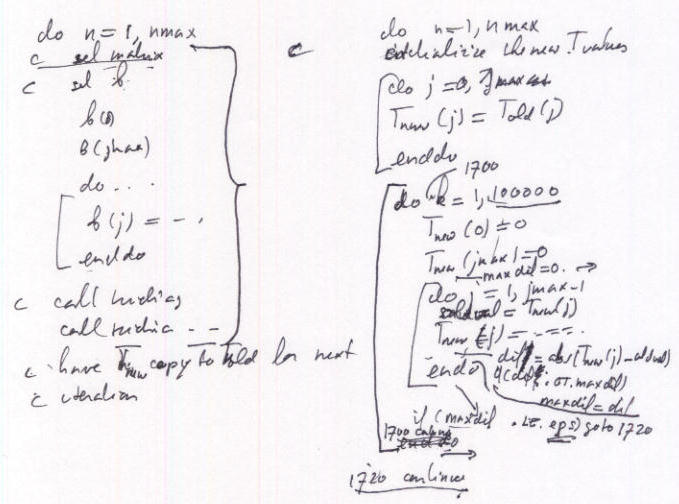 do n=1, nmax
c set matrix
c set b
b(0)
b(jmax)
do ...
b(j) = -.
enddo
c call tridiag
call tridia - -
c have Tnew copy to Told for next
c iteration
do n=1, nmax
c initialize the new T values
do j=0, jmax
Tnew(j) = Told(j)
enddo
1700
do k = 1, 100000
Tnew(0) = 0
Tnew(jmax)=0
maxdif=0. →
do j=1, jmax-1
oldval = Tnew(j)
Tnew(j) = ----
dif = abs(Tnew(j)-oldval)
enddo
if(dif .GT. maxdif)
maxdif=dif
if (maxdif .LE. eps) goto 1720
1700
1720 continue